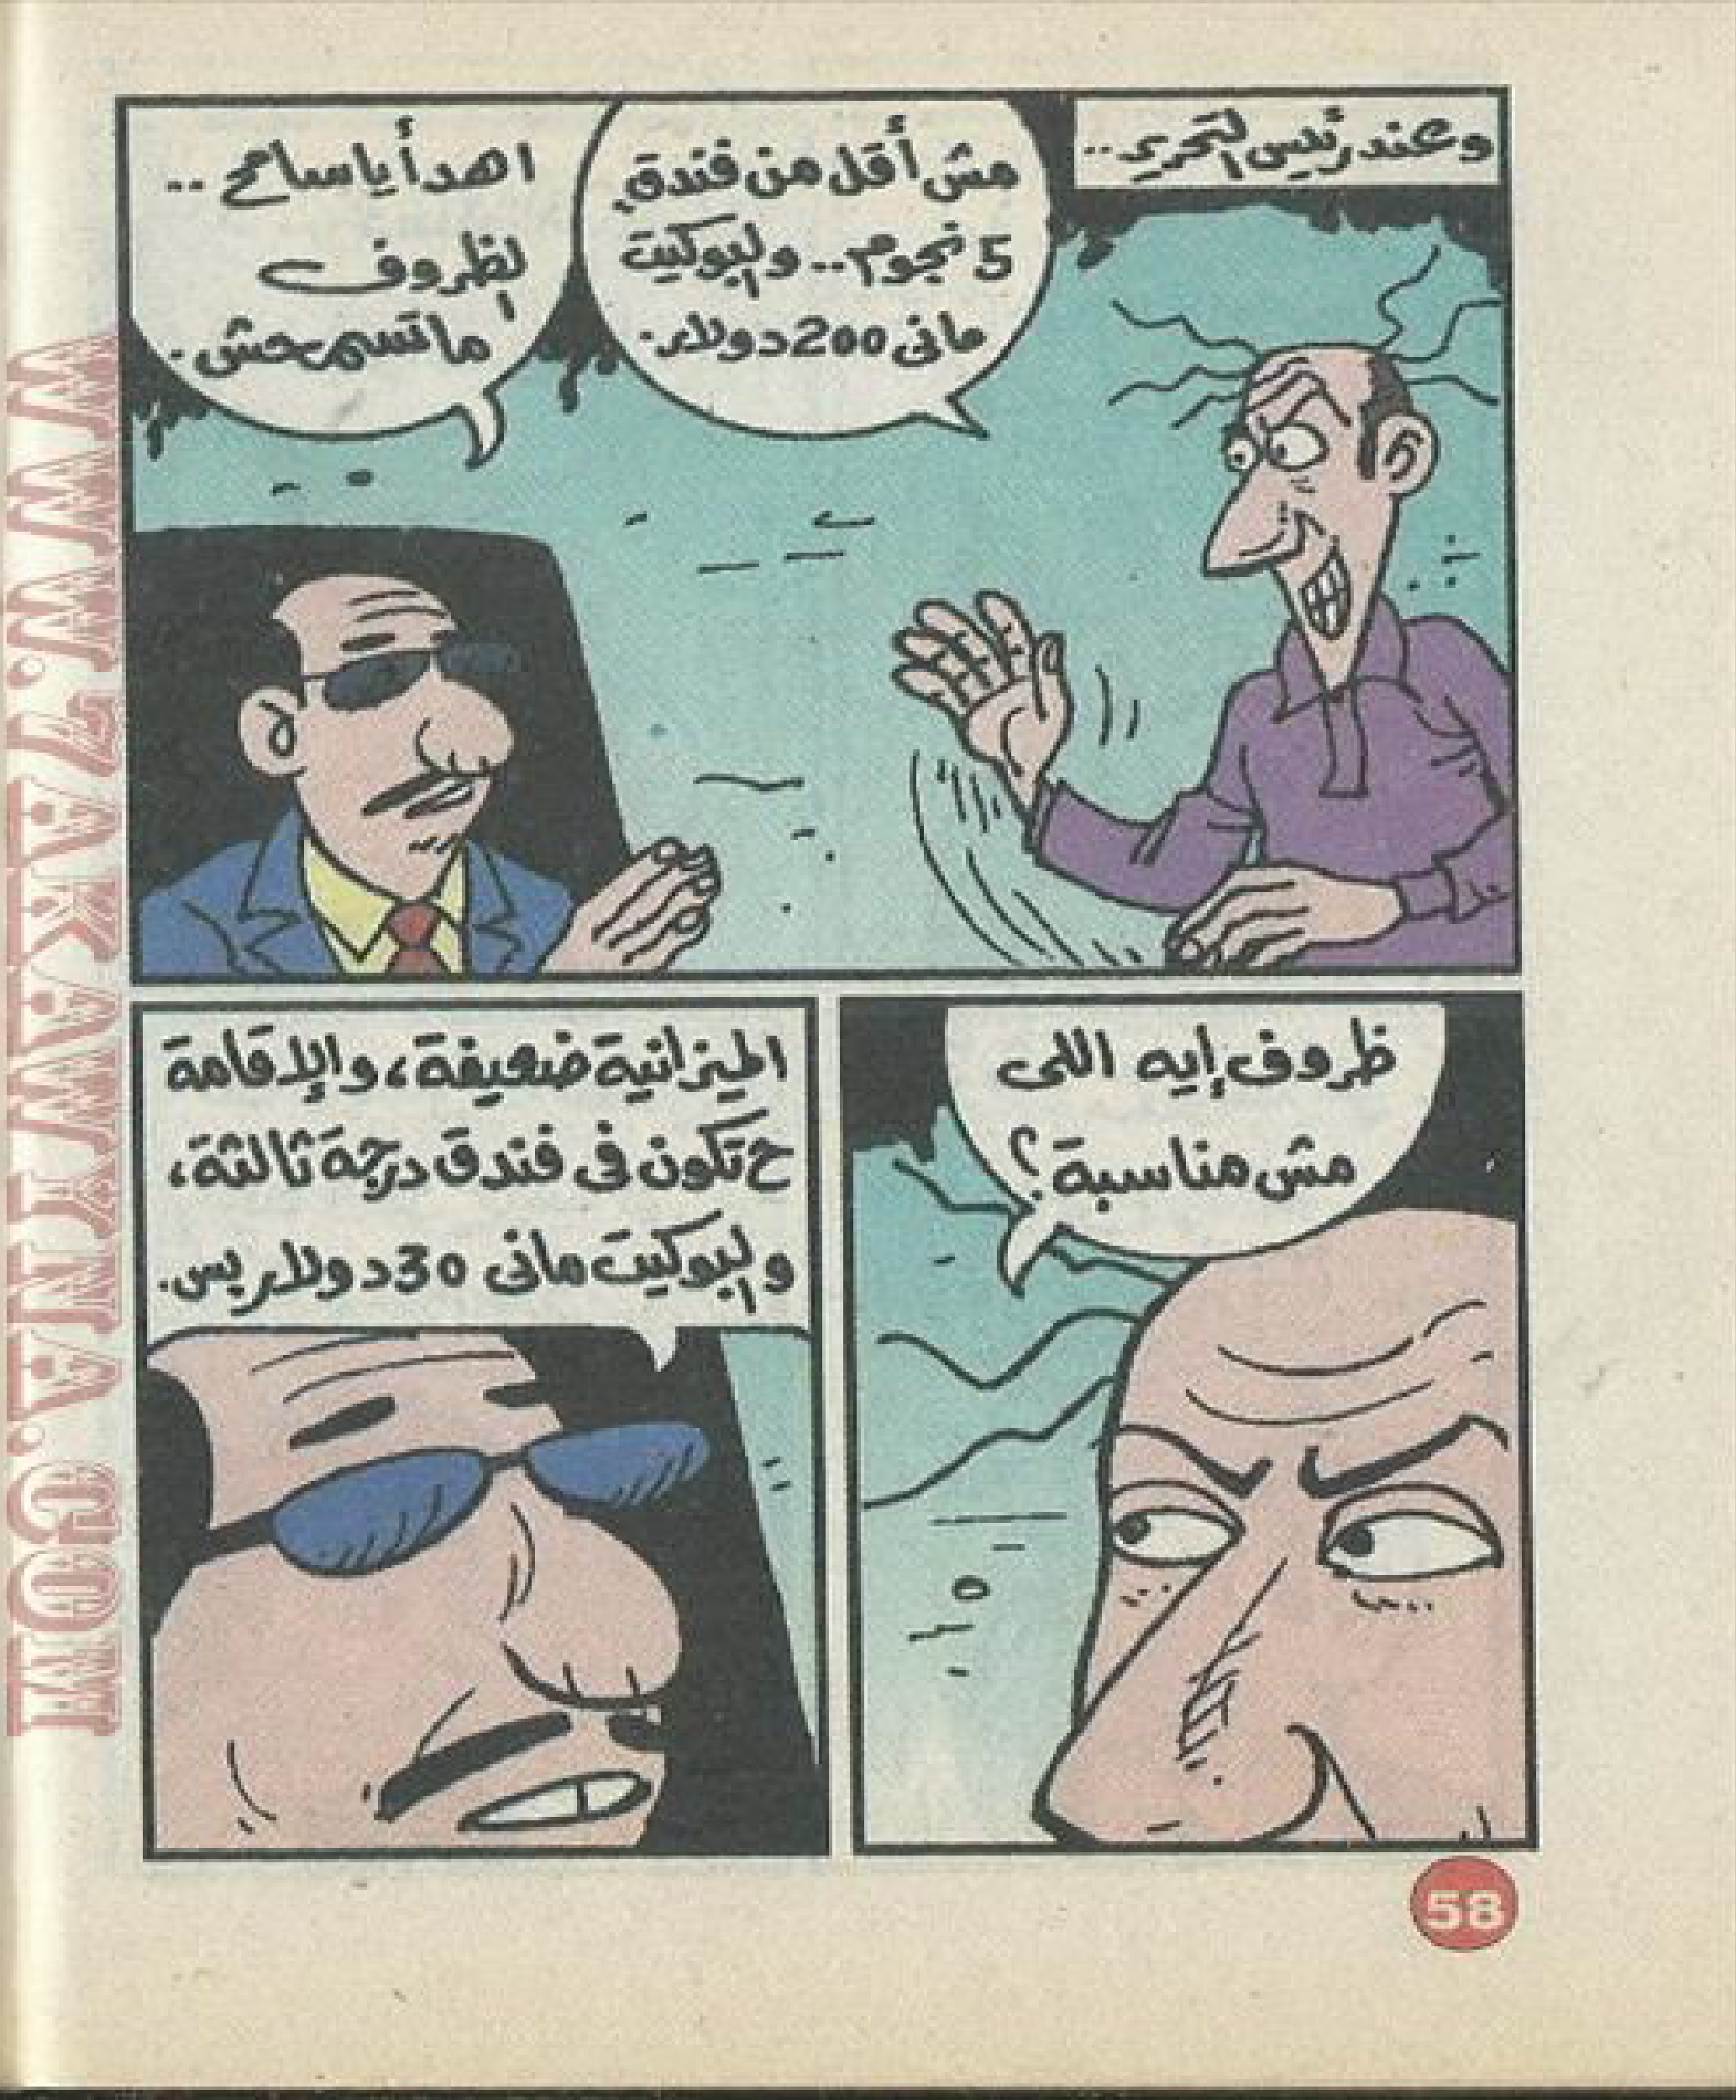 وعند رئيس التحرير..
مش أقل من فندق
5 نجوم.. والبوكيت
مانى 200 دولار.
اهدأ يا سامح ..
الظروف
ما تسمحش.
ظروف إيه اللى
مش مناسبة؟
الميزانية ضعيفة، والإقامة
ح تكون فى فندق درجة ثالثة،
والبوكيت مانى 30 دولار بس.
58
WWW.7AKAWITNA.COM